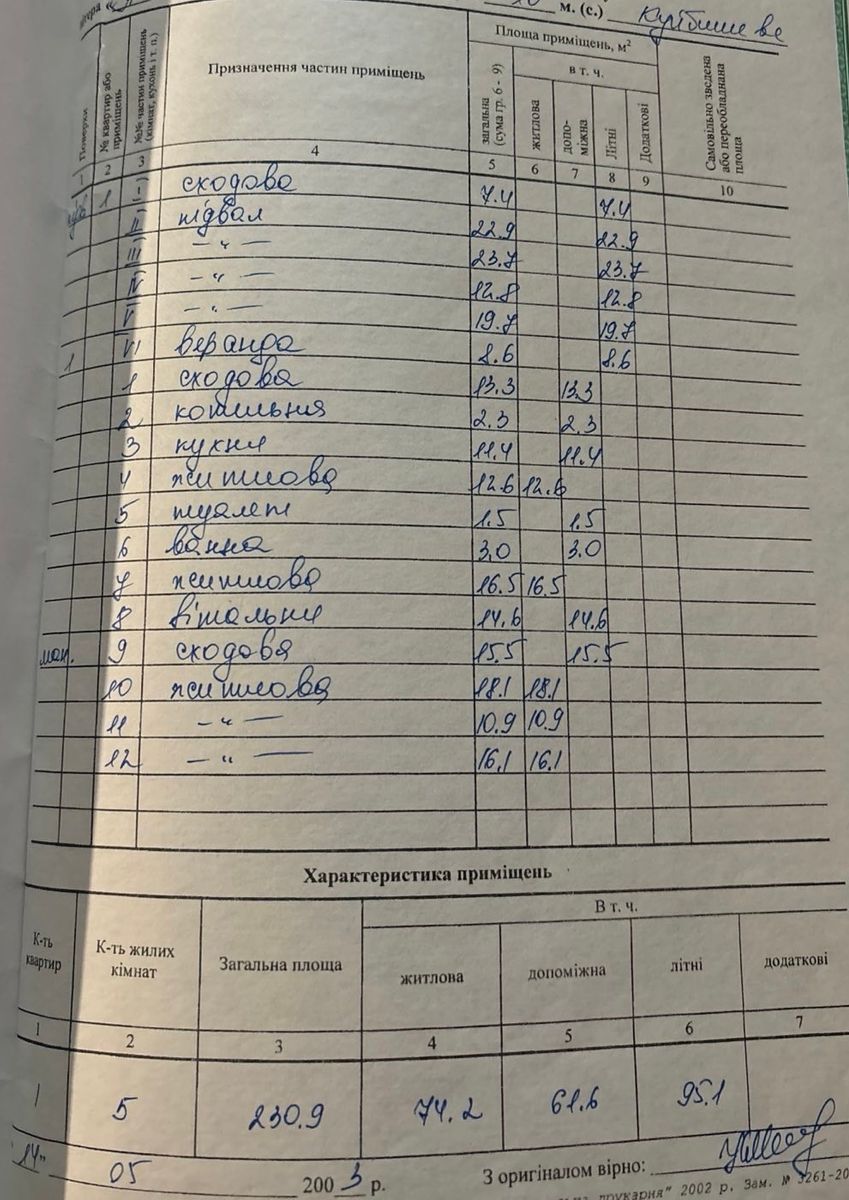 м. (с.) Куйбишеве
Поверхи
№ квартир або приміщень
№№ частин приміщень (кімнат, кухонь і т. п.)
Призначення частин приміщень
Площа приміщень, м²
загальна (сума гр. 6 - 9)
в т. ч.
житлова
допо-міжна
Літні
Додаткові
Самовільно зведена або переобладнана площа
1 2 3 4 5 6 7 8 9 10
1 I сходова 7.4 7.4
II підвал 22.9 22.9
III — " — 23.7 23.7
IV — " — 12.8 12.8
V — " — 19.7 19.7
1 VI веранда 8.6 8.6
1 сходова 13.3 13.3
2 котельня 2.3 2.3
3 кухня 11.4 11.4
4 житлова 12.6 12.6
5 туалет 1.5 1.5
6 ванна 3.0 3.0
7 житлова 16.5 16.5
8 вітальня 14.6 14.6
ман. 9 сходова 15.5 15.5
10 житлова 18.1 18.1
11 — " — 10.9 10.9
12 — " — 16.1 16.1
Характеристика приміщень
К-ть квартир
К-ть жилих кімнат
Загальна площа
В т. ч.
житлова
допоміжна
літні
додаткові
1 2 3 4 5 6 7
1 5 230.9 74.2 61.6 95.1
"14" 05 2003 р. З оригіналом вірно:
друкарня" 2002 р. Зам. № 3261-20